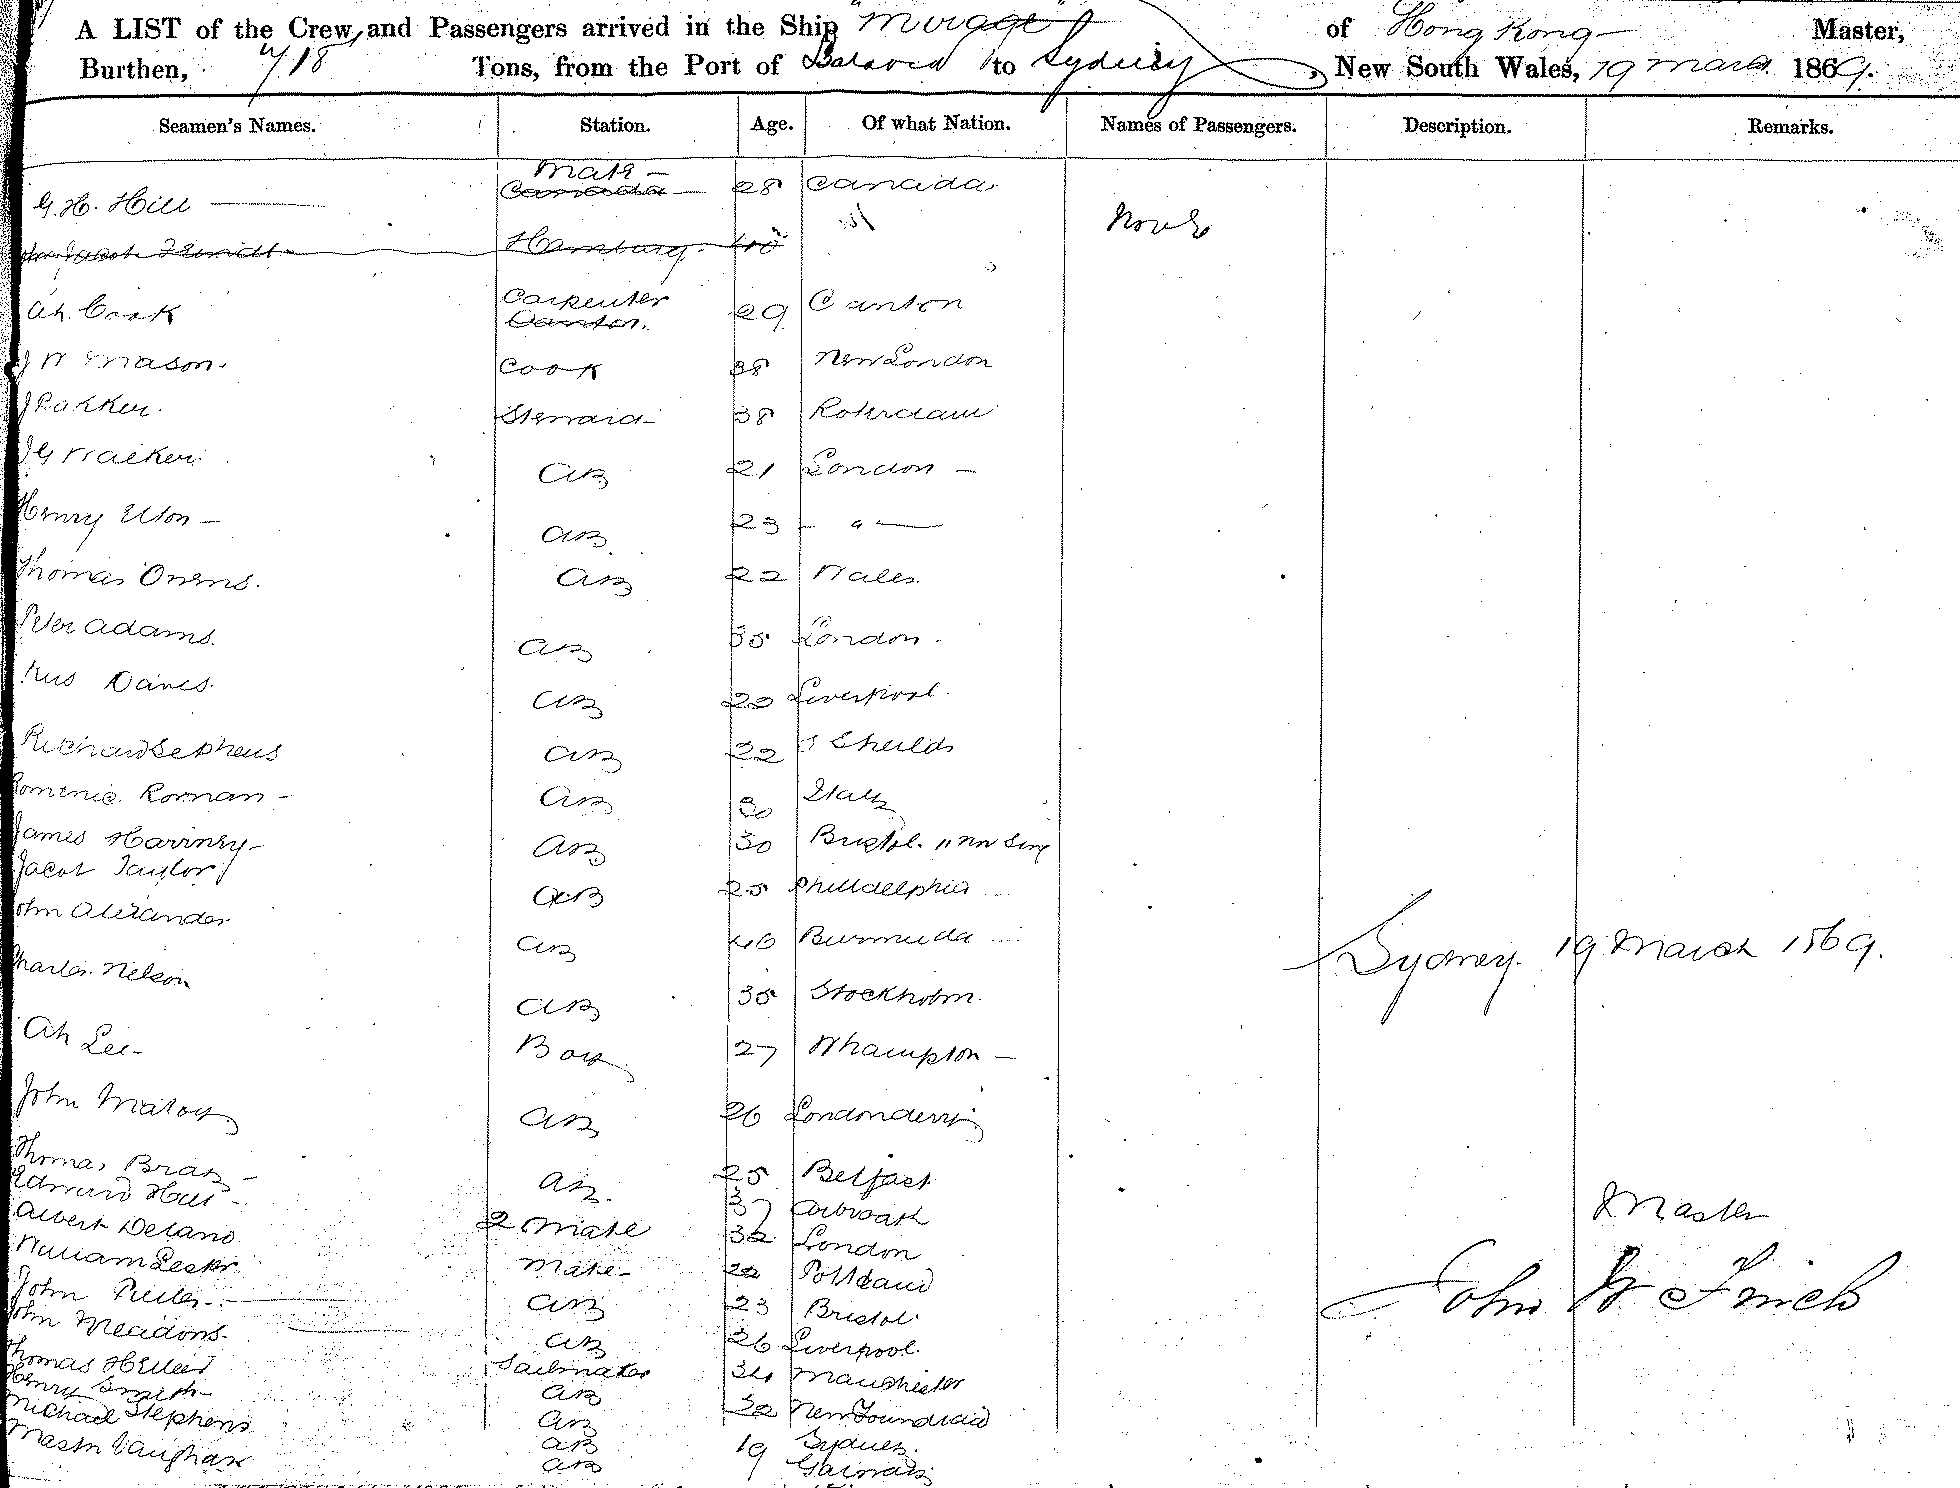 A LIST of the Crew, and Passengers arrived in the Ship "Mirage" of Hong Kong Master,
Burthen, 718 Tons, from the Port of Batavia to Sydney, New South Wales, 19 March 1869.
Seamen's Names. Station. Age. Of what Nation. Names of Passengers. Description. Remarks.
Mate
G. H. Hill Canada 28 Canada
None
Jacob Hamburg 40
Carpenter
Ah Cook Canton. 29 Canton
J W Mason. Cook 38 New London
J Bakker. Steward 38 Rotterdam
J G Walker. AB 21 London
Henry Elton AB 23 "
Thomas Owens. AB 22 Wales.
Peter Adams. AB 35 London.
Davies. AB 20 Liverpool.
Richard Sephens AB 22 S Sheilds
Dominic Roman AB 30 Italy
James Harvney AB 30 Bristol.
Jacob Taylor AB 25 Philldelphia
John Alexander AB 46 Burmuda
Sydney. 19 March 1869.
Charles Nelson AB 35 Stockholm.
Ah Lee Boy 27 Whampton
John Maloy AB 26 Londonderry
Thomas AB. 25 Belfast
Edward Hill 37 Arbroath
Master
Albert Delano 2 Mate 32 London
William Mate 22 Portland
John AB 23 Bristol.
John W Frich
John Meadows. AB 26 Liverpool.
Thomas Sailmaker 34 Manchester
Henry Smith AB
Michael Stephens AB 32 Newfoundland
AB 19 Sydney.
Martin Vaughan AB Galway